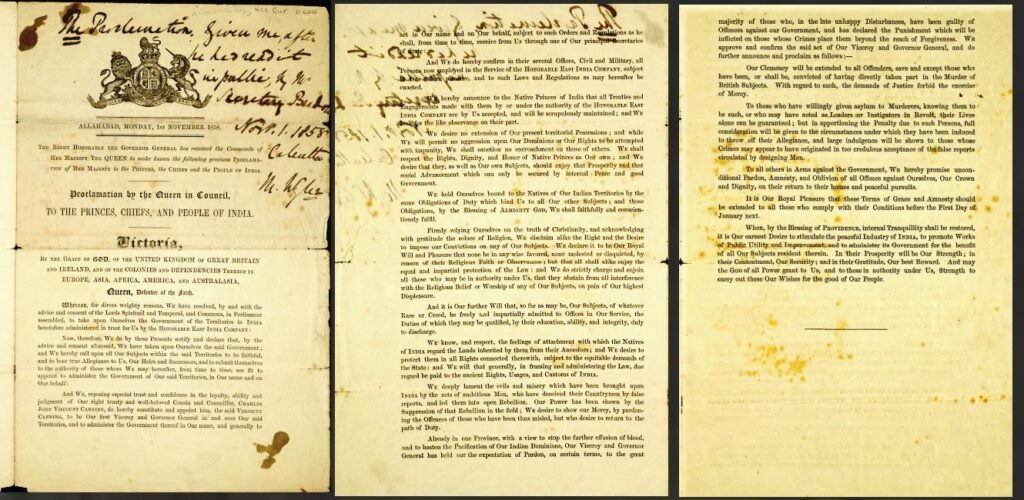 The Proclamation, Given me after
he had read it
in public, by Mr
Secretary
Novr. 1. 1858
Calcutta
ALLAHABAD, MONDAY, 1ST NOVEMBER 1858.
THE RIGHT HONORABLE THE GOVERNOR GENERAL has received the Commands of
HER MAJESTY THE QUEEN to make known the following gracious PROCLAMA-
TION OF HER MAJESTY TO THE PRINCES, THE CHIEFS AND THE PEOPLE OF INDIA.
Proclamation by the Queen in Council,
TO THE PRINCES, CHIEFS, AND PEOPLE OF INDIA.
Victoria,
BY THE GRACE OF GOD, OF THE UNITED KINGDOM OF GREAT BRITAIN
AND IRELAND, AND OF THE COLONIES AND DEPENDENCIES THEREOF IN
EUROPE, ASIA, AFRICA, AMERICA, AND AUSTRALASIA,
Queen, Defender of the Faith.
WHEREAS, for divers weighty reasons, We have resolved, by and with the
advice and consent of the Lords Spiritual and Temporal, and Commons, in Parliament
assembled, to take upon Ourselves the Government of the Territories in INDIA
heretofore administered in trust for Us by the HONORABLE EAST INDIA COMPANY:
Now, therefore, We do by these Presents notify and declare that, by the
advice and consent aforesaid, We have taken upon Ourselves the said Government;
and We hereby call upon all Our Subjects within the said Territories to be faithful,
and to bear true Allegiance to Us, Our Heirs and Successors, and to submit themselves
to the authority of those whom We may hereafter, from time to time, see fit to
appoint to administer the Government of Our said Territories, in Our name and on
Our behalf:
And We, reposing especial trust and confidence in the loyalty, ability and
judgment of Our right trusty and well-beloved Cousin and Councillor, CHARLES
JOHN VISCOUNT CANNING, do hereby constitute and appoint him, the said VISCOUNT
CANNING, to be Our First Viceroy and Governor General in and over Our said
Territories, and to administer the Government thereof in Our name, and generally to
act in Our name and on Our behalf, subject to such Orders and Regulations as he
shall, from time to time, receive from Us through one of Our principal Secretaries
of State:
And We do hereby confirm in their several Offices, Civil and Military, all
Persons now employed in the Service of the HONORABLE EAST INDIA COMPANY, subject
to Our future pleasure, and to such Laws and Regulations as may hereafter be
enacted.
We hereby announce to the Native Princes of INDIA that all Treaties and
Engagements made with them by or under the authority of the HONORABLE EAST INDIA
COMPANY are by Us accepted, and will be scrupulously maintained; and We
look for the like observance on their part.
We desire no extension of Our present territorial Possessions; and while
We will permit no aggression upon Our Dominions or Our Rights to be attempted
with impunity, We shall sanction no encroachment on those of others. We shall
respect the Rights, Dignity, and Honor of Native Princes as Our own; and We
desire that they, as well as Our own Subjects, should enjoy that Prosperity and that
social Advancement which can only be secured by internal Peace and good
Government.
We hold Ourselves bound to the Natives of Our Indian Territories by the
same Obligations of Duty which bind Us to all Our other Subjects; and those
Obligations, by the Blessing of ALMIGHTY GOD, We shall faithfully and conscien-
tiously fulfil.
Firmly relying Ourselves on the truth of Christianity, and acknowledging
with gratitude the solace of Religion, We disclaim alike the Right and the Desire
to impose Our Convictions on any of Our Subjects. We declare it to be Our Royal
Will and Pleasure that none be in any wise favored, none molested or disquieted, by
reason of their Religious Faith or Observances; but that all shall alike enjoy the
equal and impartial protection of the Law: and We do strictly charge and enjoin
all those who may be in authority under Us, that they abstain from all interference
with the Religious Belief or Worship of any of Our Subjects, on pain of Our highest
Displeasure.
And it is Our further Will that, so far as may be, Our Subjects, of whatever
Race or Creed, be freely and impartially admitted to Offices in Our Service, the
Duties of which they may be qualified, by their education, ability, and integrity, duly
to discharge.
We know, and respect, the feelings of attachment with which the Natives
of INDIA regard the Lands inherited by them from their Ancestors; and We desire to
protect them in all Rights connected therewith, subject to the equitable demands of
the State: and We will that generally, in framing and administering the Law, due
regard be paid to the ancient Rights, Usages, and Customs of INDIA.
We deeply lament the evils and misery which have been brought upon
INDIA by the acts of ambitious Men, who have deceived their Countrymen by false
reports, and led them into open Rebellion. Our Power has been shown by the
Suppression of that Rebellion in the field; We desire to show Our Mercy, by pardon-
ing the Offences of those who have been thus misled, but who desire to return to the
path of Duty.
Already in one Province, with a view to stop the further effusion of blood,
and to hasten the Pacification of Our Indian Dominions, Our Viceroy and Governor
General has held out the expectation of Pardon, on certain terms, to the great
majority of those who, in the late unhappy Disturbances, have been guilty of
Offences against our Government, and has declared the Punishment which will be
inflicted on those whose Crimes place them beyond the reach of Forgiveness. We
approve and confirm the said act of Our Viceroy and Governor General, and do
further announce and proclaim as follows:—
Our Clemency will be extended to all Offenders, save and except those
who have been, or shall be, convicted of having directly taken part in the Murder of
British Subjects. With regard to such, the demands of Justice forbid the exercise
of Mercy.
To those who have willingly given asylum to Murderers, knowing them to
be such, or who may have acted as Leaders or Instigators in Revolt, their Lives
alone can be guaranteed; but in apportioning the Penalty due to such Persons, full
consideration will be given to the circumstances under which they have been induced
to throw off their Allegiance, and large indulgence will be shown to those whose
Crimes may appear to have originated in too credulous acceptance of the false reports
circulated by designing Men.
To all others in Arms against the Government, We hereby promise uncon-
ditional Pardon, Amnesty, and Oblivion of all Offence against Ourselves, Our Crown
and Dignity, on their return to their homes and peaceful pursuits.
It is Our Royal Pleasure that these Terms of Grace and Amnesty should
be extended to all those who comply with their Conditions before the First Day of
January next.
When, by the Blessing of PROVIDENCE, internal Tranquillity shall be restored,
it is Our earnest Desire to stimulate the peaceful Industry of INDIA, to promote Works
of Public Utility and Improvement, and to administer its Government for the benefit
of all Our Subjects resident therein. In their Prosperity will be Our Strength; in
their Contentment, Our Security; and in their Gratitude, Our best Reward. And may
the GOD of all Power grant to Us, and to those in authority under Us, Strength to
carry out these Our Wishes for the good of Our People.